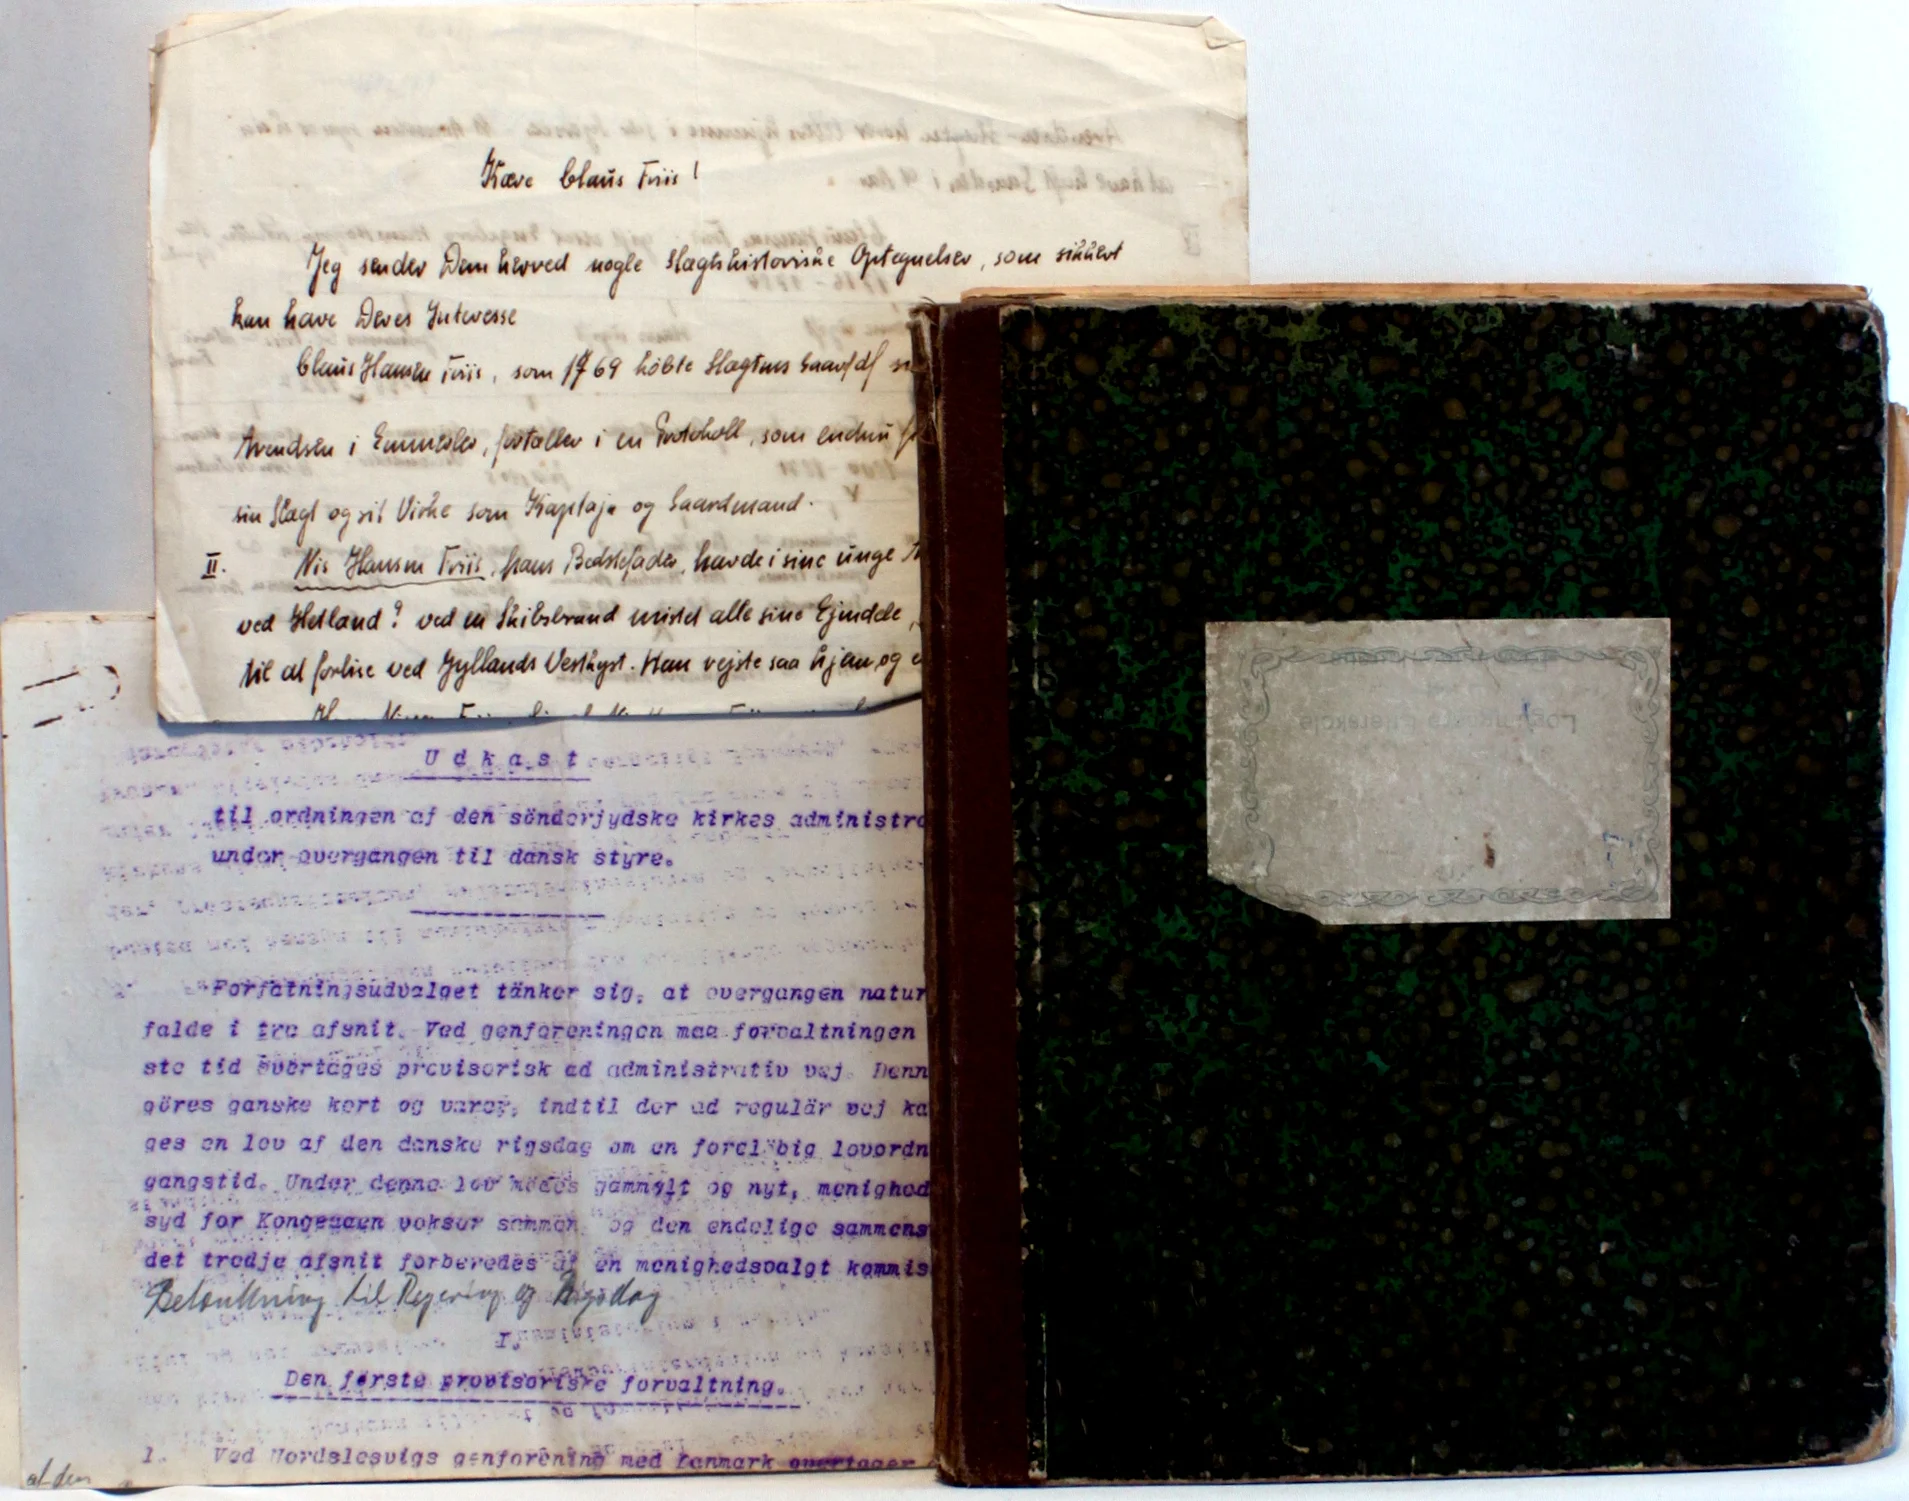 Kære Claus Friis!
Jeg sender Dem herved nogle slægtshistoriske Optegnelser, som sikkert
kan have Deres Interesse
Claus Hansen Friis, som 1769 købte Slægtens Gaard af
Arendsen i Emmerlev, fortæller i en Protokoll, som endnu
sin Slægt og sit Virke som Kaptajn og Gaardmand.
II. Nis Hansen Friis, hans Bedstefader, havde i sine unge
ved Hetland? ved en Skibsbrand mistet alle sine Ejendele,
til at forlise ved Jyllands Vestkyst. Han rejste saa hjem, og
Udkast
til ordningen af den sönderjydske kirkes administra
under overgangen til dansk styre.
Forfatningsudvalget tänker sig, at overgangen natur
falde i tre afsnit. Ved genforeningen maa forvaltningen
ste tid overtages provisorisk ad administrativ vej. Denn
göres ganske kort og varer, indtil der ad regulär vej ka
ges en lov af den danske rigsdag om en forelöbig lovordn
gangstid. Under denne lov mödes gammelt og nyt, menighed
syd for Kongeaaen vokser sammen og den endelige sammens
det tredje afsnit forberedes af en menighedsvalgt kommis
Betænkning til Regering og Rigsdag
I.
Den förste provisoriske forvaltning.
1. Ved Nordslesvigs genforening med Danmark overtager
af den